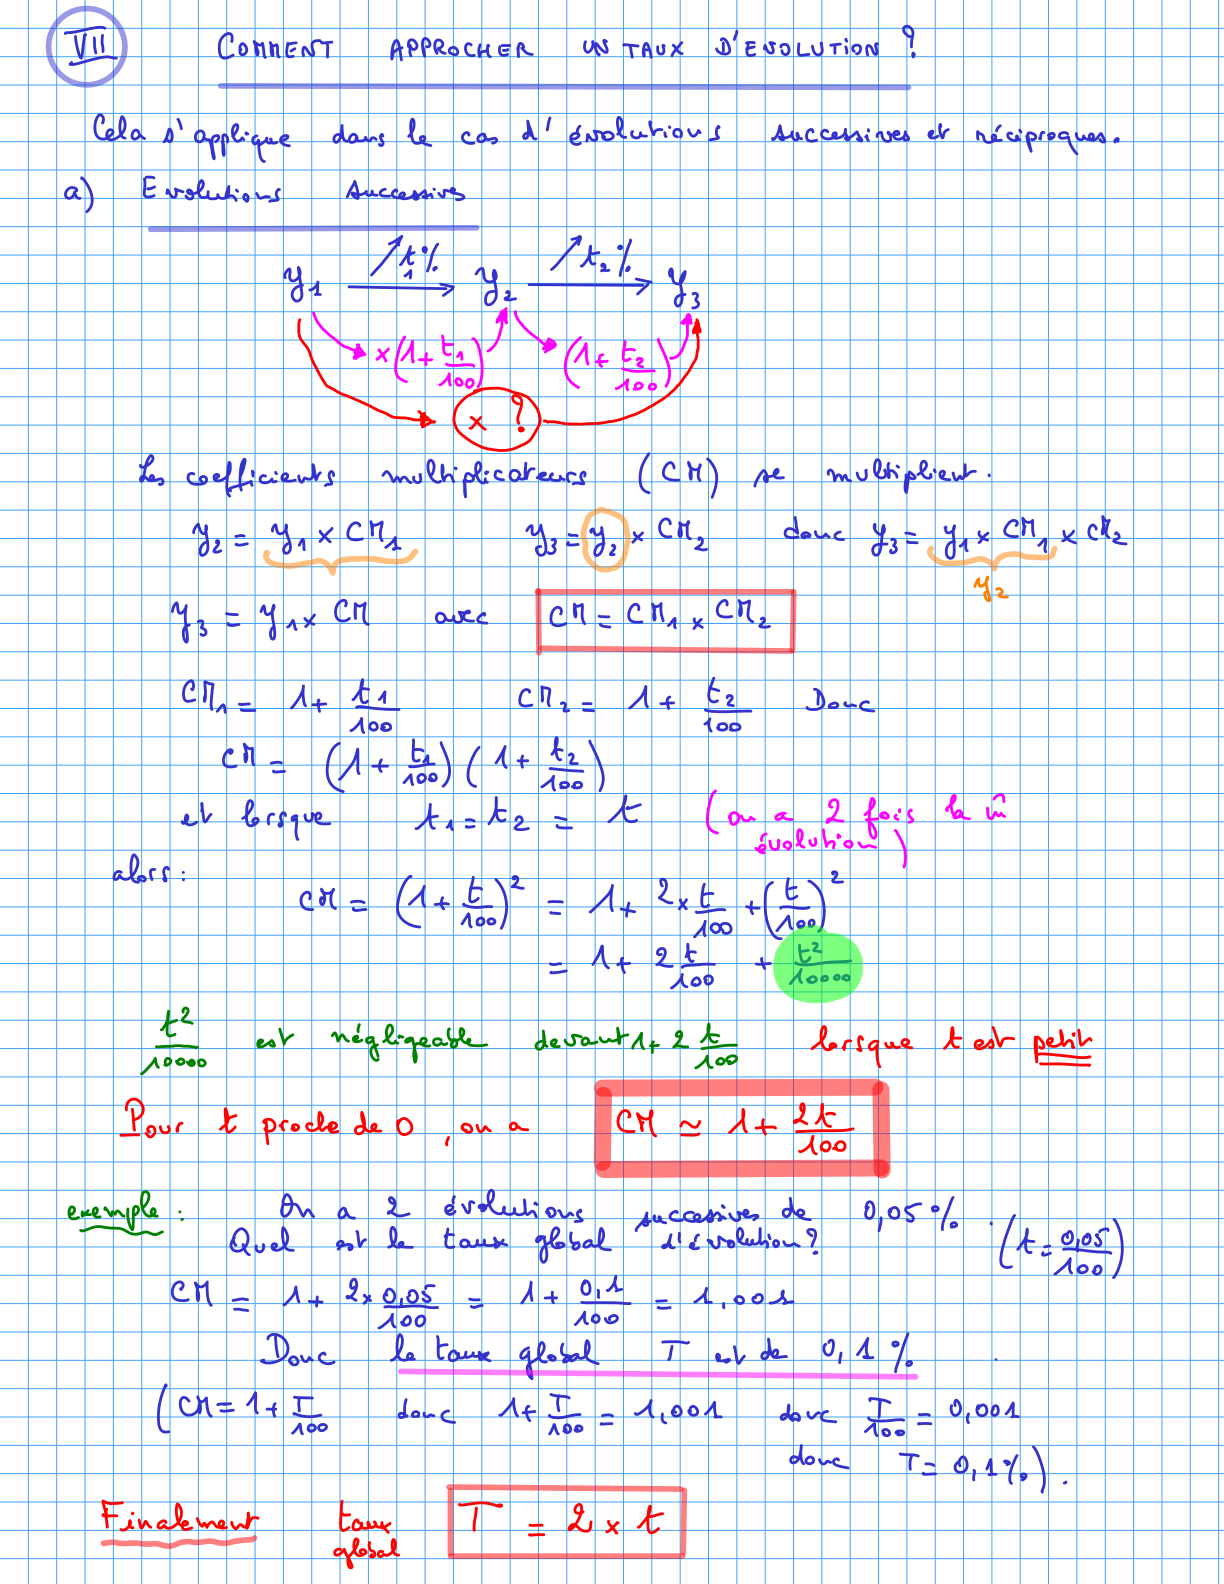 VII COMMENT APPROCHER UN TAUX D'EVOLUTION ?
Cela s'applique dans le cas d'évolutions successives et réciproques.
a) Evolutions successives
↗ t₁% ↗ t₂%
y₁ → y₂ → y₃
×(1 + t₁/100) (1 + t₂/100)
× ?
Les coefficients multiplicateurs (CM) se multiplient.
y₂ = y₁ × CM₁ y₃ = y₂ × CM₂ donc y₃ = y₁ × CM₁ × CM₂
y₂
y₃ = y₁ × CM avec CM = CM₁ × CM₂
CM₁ = 1 + t₁/100 CM₂ = 1 + t₂/100 Donc
CM = (1 + t₁/100) (1 + t₂/100)
et lorsque t₁ = t₂ = t (on a 2 fois la m̂
évolution)
alors :
CM = (1 + t/100)² = 1 + 2 × t/100 + (t/100)²
= 1 + 2 t/100 + t²/10000
t²/10000 est négligeable devant 1 + 2 t/100 lorsque t est petit
Pour t proche de 0, on a CM ≃ 1 + 2t/100
exemple : On a 2 évolutions successives de 0,05 %.
Quel est le taux global d'évolution ? (t = 0,05/100)
CM = 1 + 2 × 0,05/100 = 1 + 0,1/100 = 1,001
Donc le taux global T est de 0,1 %.
(CM = 1 + T/100 donc 1 + T/100 = 1,001 donc T/100 = 0,001
donc T = 0,1 %).
Finalement taux global T = 2 × t